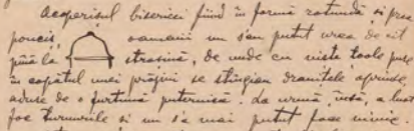 Acoperisul bisericii fiind in formă rotundă si prea
poucis, oamenii nu s'au putut urca de cît
pînă la strasină, de unde cu niste toale puse
in capătul unei prăjini se stingeau dranitele aprinse
aduse de o furtună puternică. La urmă, însă, a luat
foc turnurile si nu sa mai putut face nimic.